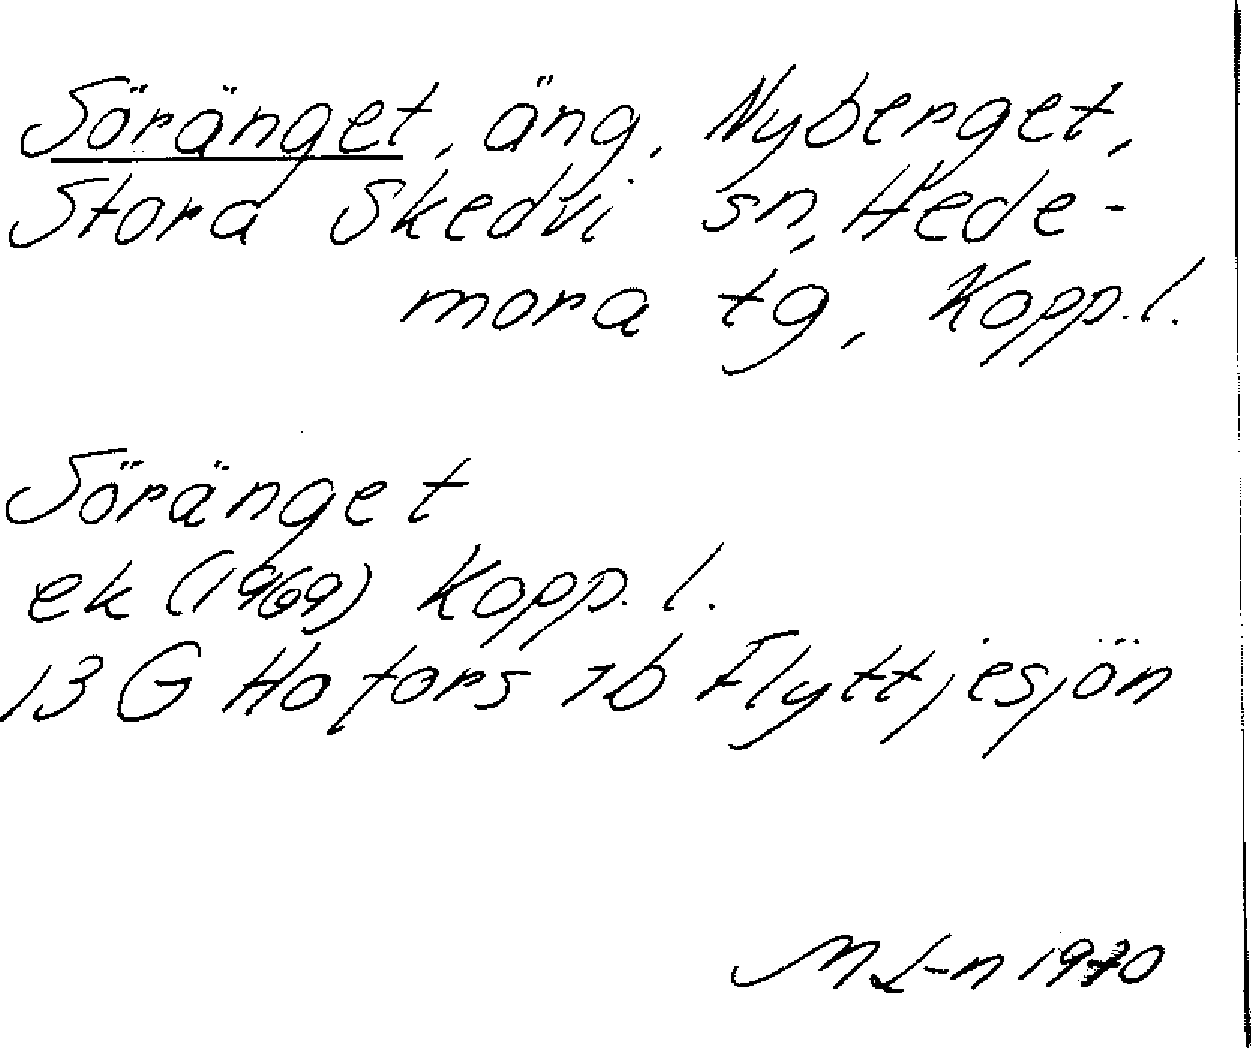 Söränget, äng, Nyberget,
Stora Skedvi sn, Hede-
mora tg, Kopp.l.
Söränget
ek (1969) Kopp.l.
13 G Hofors 7b Flyttjesjön
M L-n 1970